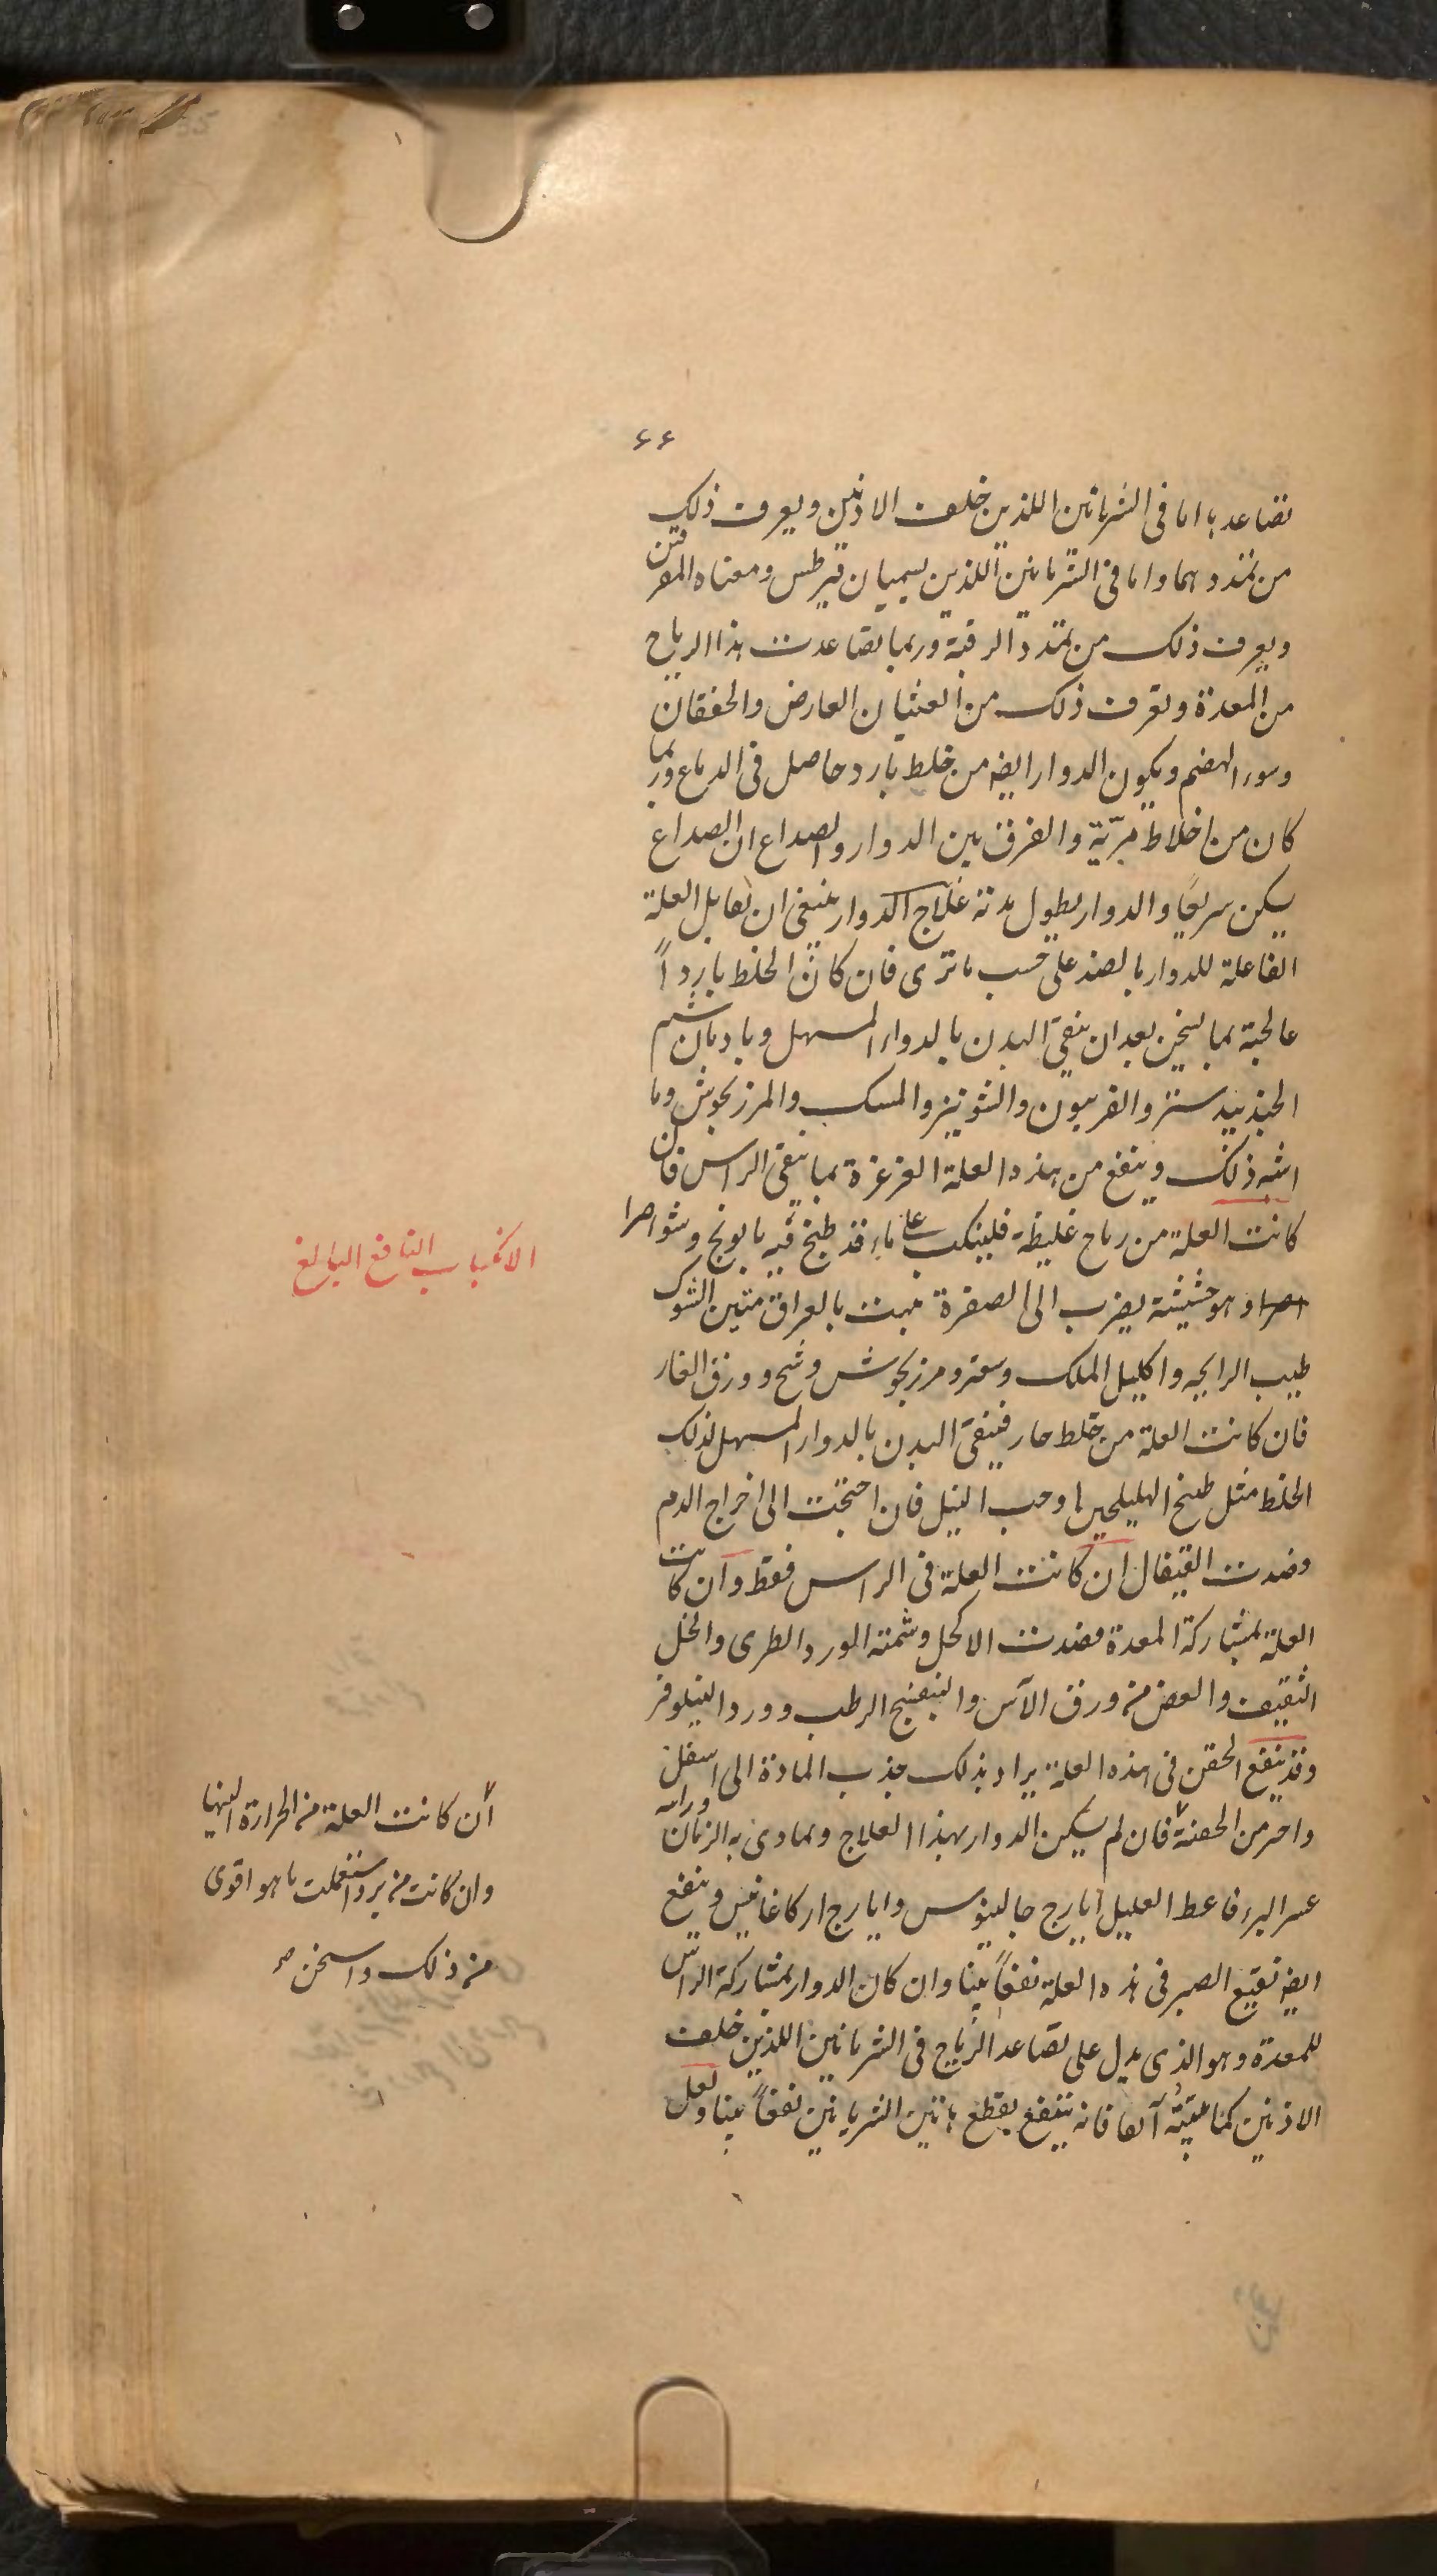 ٦٦
تصاعدها اما فى الشريانين اللذين خلف الاذنين ويعرف ذلك
من تمددهما واما فى الشريانين اللذين يسميان قيرطس ومعناه المغرقتن
ويعرف ذلك من تمدد الرقبة وربما تصاعدت هذا الرياح
من المعدة وتعرف ذلك من الغثيان العارض والخفقان
وسوء الهضم ويكون الدوار ايضه من خلط بارد حاصل فى الدماع وربما
كان من اخلاط مريّة والفرق بين الدوار والصداع ان الصداع
يسكن سريعًا والدوار يطول مدته علاج الدوار ينبغى ان تقابل العلة
الفاعلة للدوار بالضد على حسب ما ترى فان كان الخلط باردًا
عالجته بما يسخن بعد ان ينقى البدن بالدواء المسهل وبادمان شم
الجندبيدستر والفربيون والشونيز والمسك والمرزنجوش وما
اشبه ذلك وينفع من هذه العلة الغرغرة بما ينقى الراس فان
كانت العلة من رياح غليظة فلينكب على ماء قد طبخ فيه بابونج وشواصرا
اصرا وهو حشيشة يضرب الى الصفرة نبت بالعراق متين الشوك
طيب الرايحه واكليل الملك وسعتر ومرزنجوش وشح وورق الغار
فان كانت العلة من خلط حار فينقى البدن بالدوار المسهل لذلك
الخلط مثل طبخ الهليلجين او حب النيل فان احتجت الى اخراج الدم
فصدت القيفال ان كانت العلة فى الراس فقط وان كانت
العلة بمشاركة المعدة فصدت الاكحل وشمته الورد الطرى والخل
الثقيف والعض من ورق الآس والبنفسج الرطب وورد النيلوفر
وقد ينفع الحقن فى هذه العلة يراد بذلك جذب المادة الى اسفل
واحر من الحقنة فان لم يسكن الدوار بهذا العلاج وتمادى به الزمان وراته
عسر البرء فاعط العليل ايارج جالينوس وايارج اركاغانيس وينفع
ايضه نقيع الصبر فى هذه العلة نفعًا بينا وان كان الدوار بمشاركة الراس
للمعدة وهو الذى يدل على تصاعد الرياح فى الشريانين اللذين خلف
الاذنين كما بيّنته آنفا فانه ينتفع بقطع هاتين الشريانين نفعًا بينا ولعل
الانكباب النافع البالغ
ان كانت العلة من الحرارة اليها
وان كانت من برد استعملت ما هو اقوى
من ذلك واسخن صح